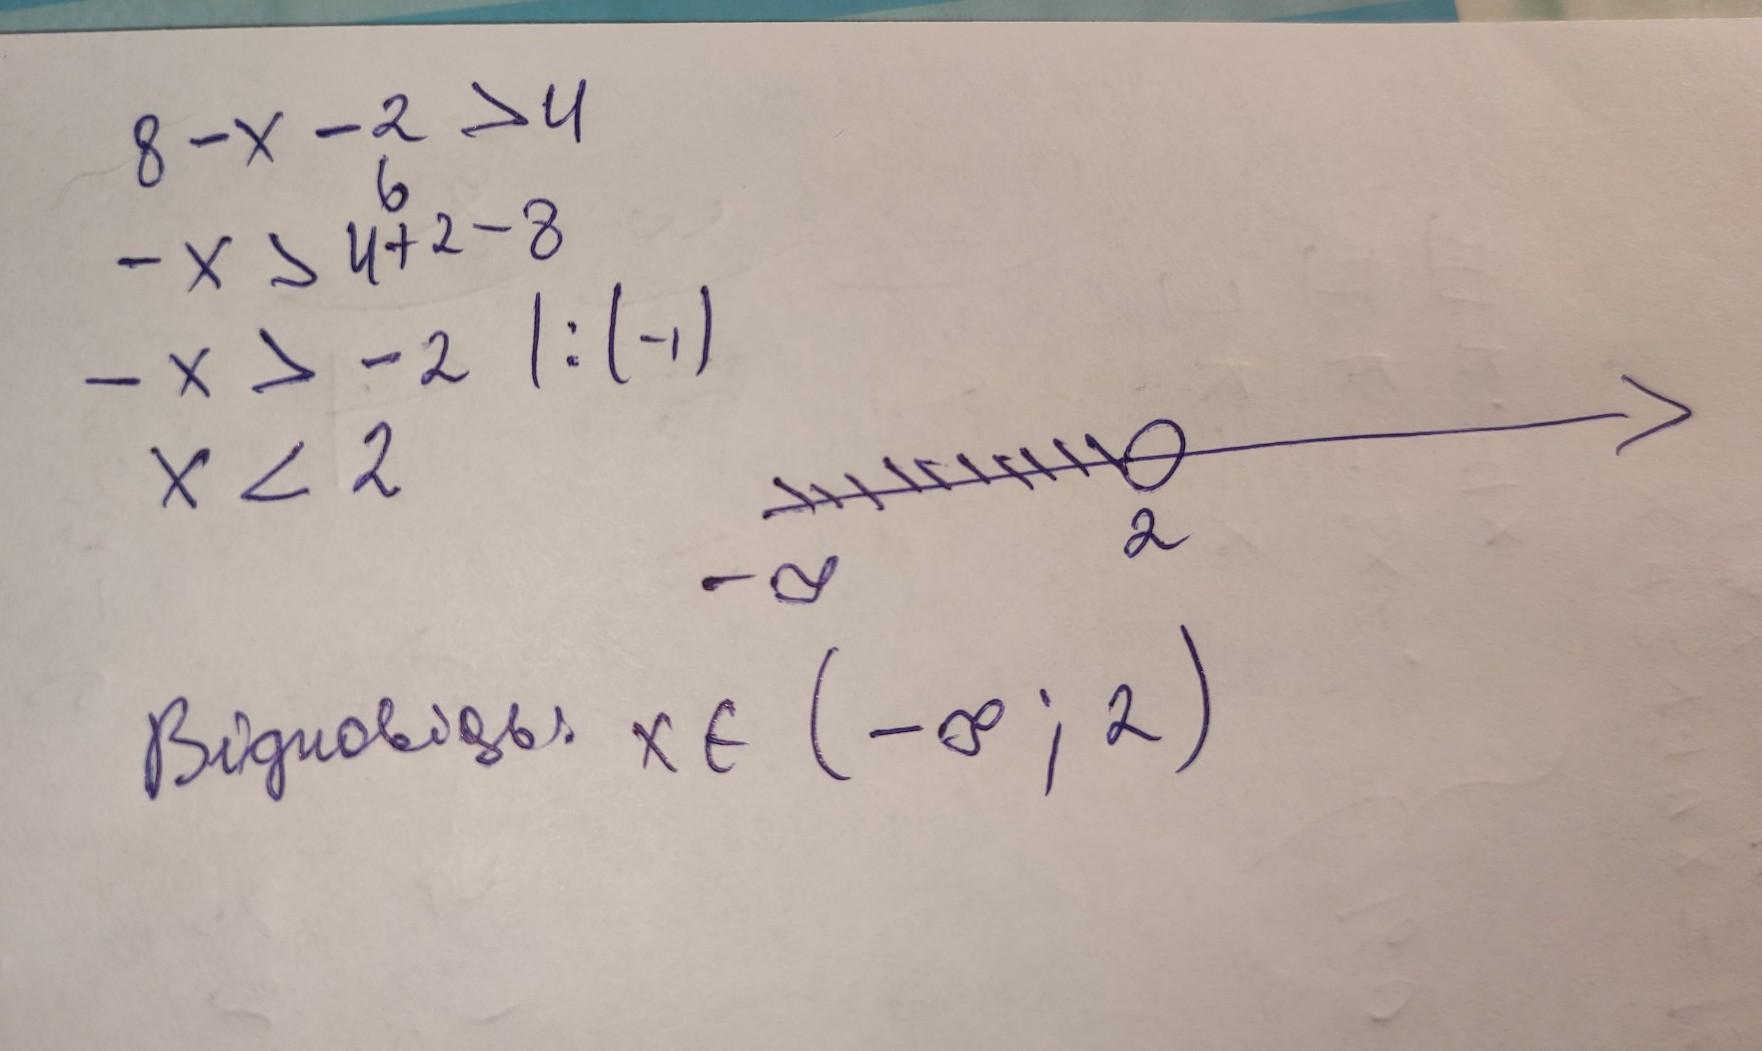 8 - x - 2 > 4
6
- x > 4 + 2 - 8
- x > - 2 | : (-1)
x < 2
2
- ∞
Відповідь: x ∈ (-∞; 2)